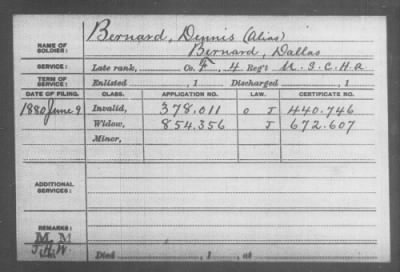 NAME OF SOLDIER: Bernard, Dennis (Alias)
Bernard, Dallas
SERVICE: Late rank, Co. F, 4 Reg't U.S.C.H.A.
TERM OF SERVICE: Enlisted , 1 Discharged , 1
DATE OF FILING. CLASS. APPLICATION NO. LAW. CERTIFICATE NO.
1880 June 9 Invalid, 378.011 O J 440.746
Widow, 854.356 J 672.607
Minor,
ADDITIONAL SERVICES:
REMARKS:
M. M
J.H.W.
Died , 1 , at